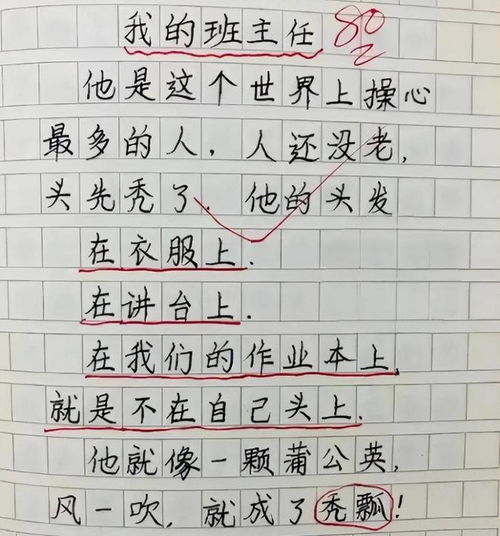 我的班主任 80
他是这个世界上操心
最多的人，人还没老，
头先秃了．他的头发
在衣服上．
在讲台上．
在我们的作业本上，
就是不在自己头上．
他就像一颗蒲公英，
风一吹，就成了秃瓢！